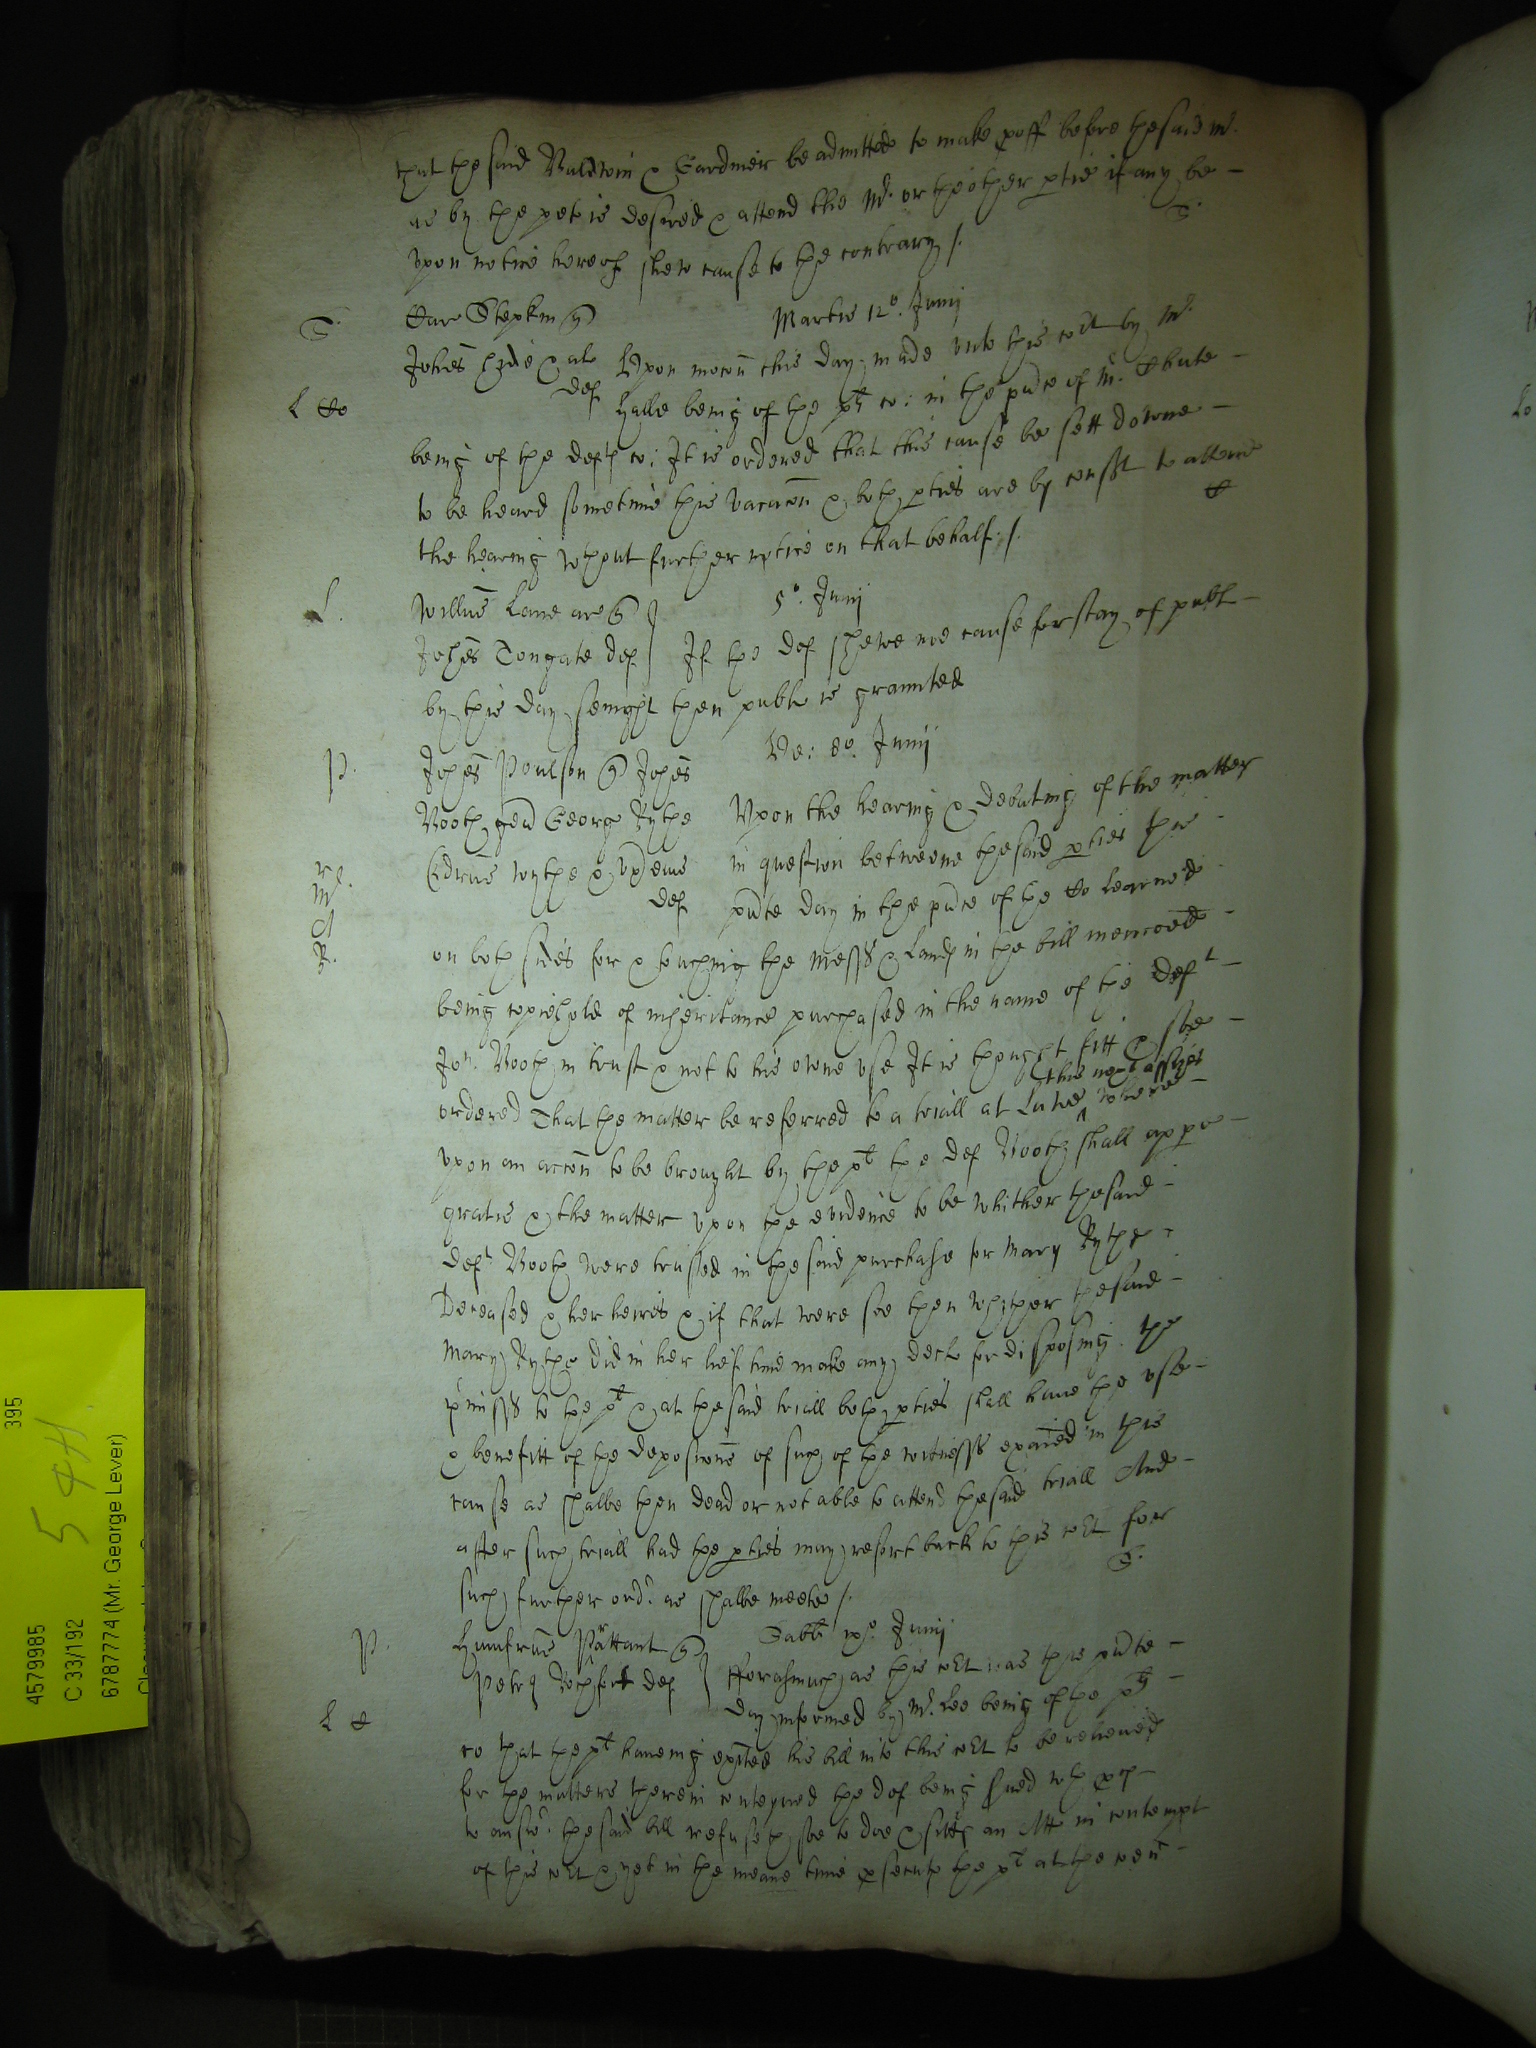 that the said Baldwin & Gardiner be admitted to make proff before the said Mr.
as by the pet is desired & attend the Mr. or the other ptie if any be
upon notice hereof shew cause to the contrary /.
S.
S.
Martis 12o. Junij
Johes Hide & al
def
Upon mocon this day made unto this cort by Mr.
L Co
Hall being of the plt co: in the pnce of Mr. Chute
being of the deftes co: It is ordered that this cause be sett downe
to be heard sometime this vacacon & both pties are by consent to attend
the hearing wthout further notice on that behalf: /.
L.
Willus Lane ar
5o. Junij
Johes Tongate def
If the def shewe noe cause for stay of publ
by this day senight then publ is graunted
P.
Johes Poulson Johes
Ve: 8o. Junij
Booth gen George Rythe
Upon the hearing & debating of the matter
Edrus Wythe & ux eius
in question betweene the said pties this
Mr.
def
pnte day in the pnce of the Co learned
R.
on both sides for & touching the mess & lands in the bill menconed
being copiehold of inheritance purchased in the name of the deft
Jon. Booth in trust & not to his owne use It is thought fitt & soe
ordered That the matter be referred to a triall at Lawe the next assizes where
upon an accon to be brought by the plt the def Booth shall appe
gratis & the matter upon the evidence to be whither the said
deft Booth were trusted in the said purchase for Mary Rythe
deceased & her heires & if that were soe then whither the said
Mary Rythe did in her life time make any decl for disposing the
pmisses to the plt & at the said triall both pties shall have the use
& benefitt of the deposicons of such of the witnesses exaied in this
cause as shalbe then dead or not able to attend the said triall And
after such triall had the pties may resort back to this cort for
such further ordr. as shalbe meete /.
S.
P
Humfrus Prattant
Sabti ixo. Junij
Petrus Rochfort def
Fforasmuch as this cort was this pnte
day informed by Mr. Lee being of the pltes
L C
co that the plt haveing exited his bill into this cort to be releived
for the matters therein conteyned the def being served wth proces
to answr. the said bill refuseth soe to doe & sitts an Att in contempt
of this cort & yet in the meane time psecuts the plt at the comon
395
5 4H
4579985
C 33/192
6787774 (Mr. George Lever)